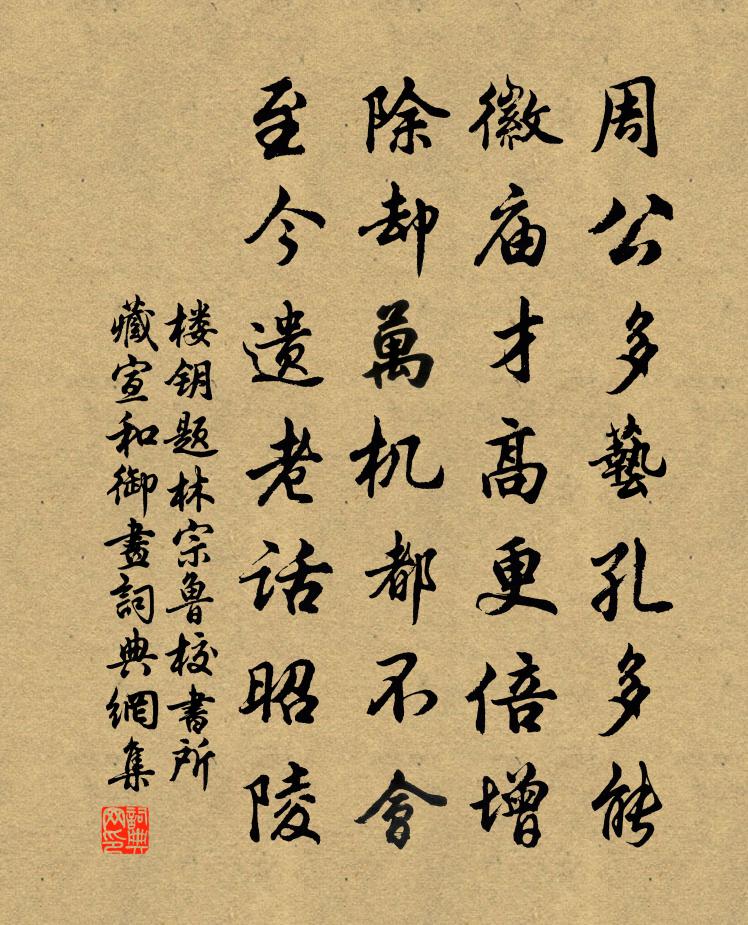 周公多藝孔多能
徽庙才高更倍增
除却萬机都不會
至今遗老话昭陵
楼钥题林宗鲁校書所
藏宣和御畫詞典網集
詞典
网印